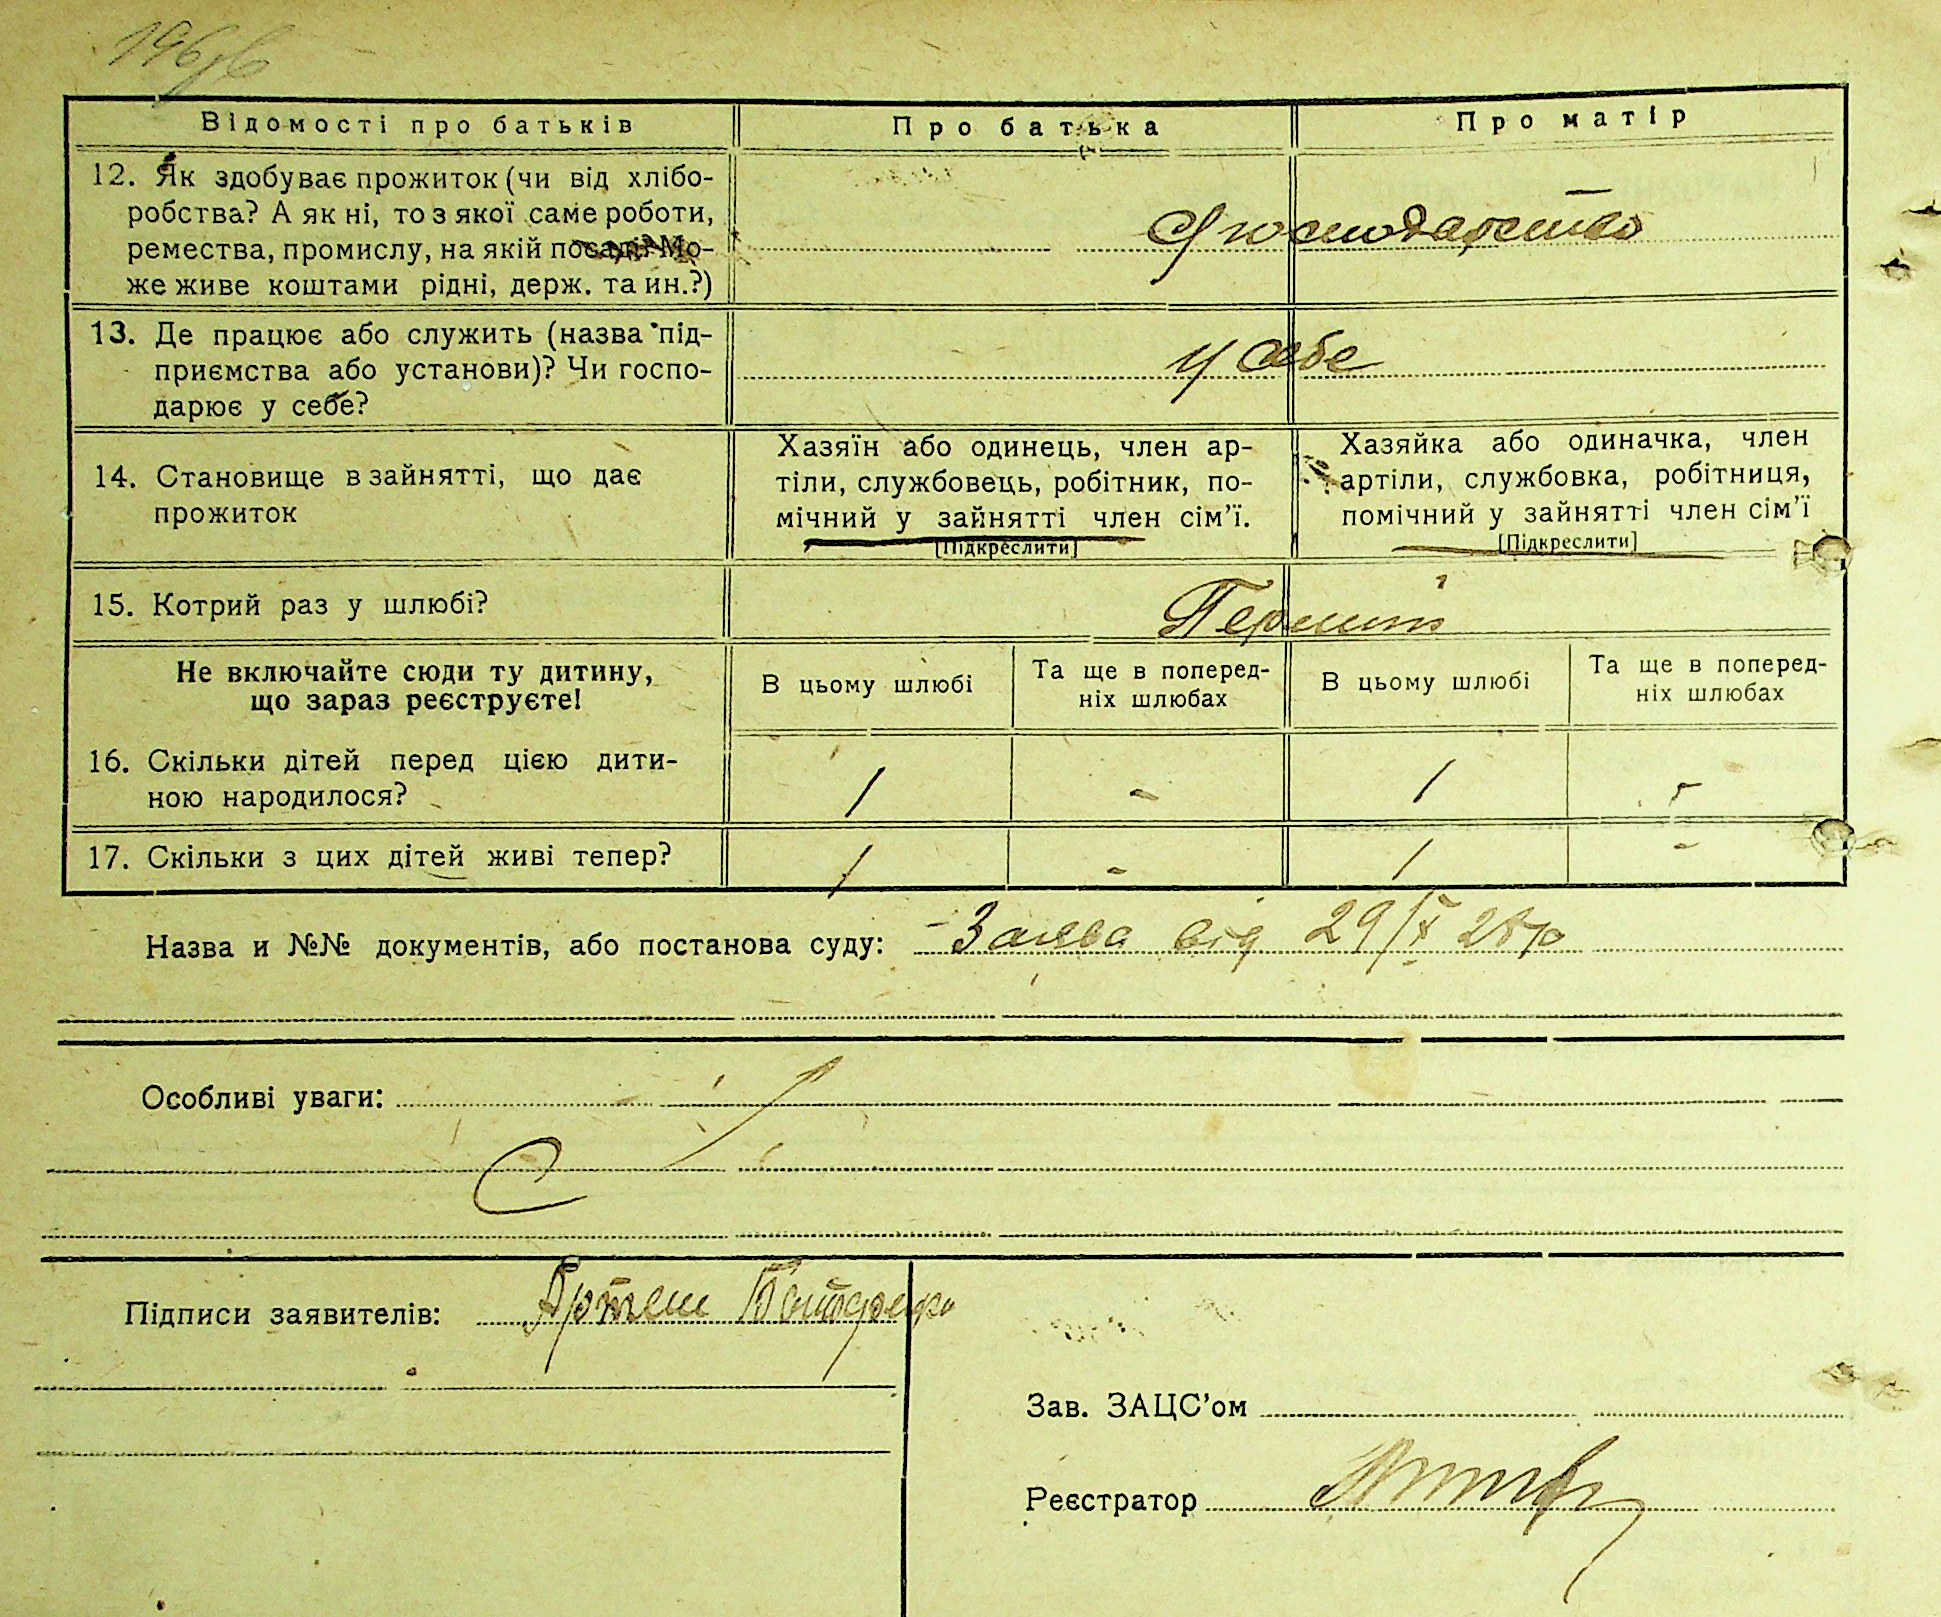 Відомості про батьків
Про батька
Про матір
12. Як здобуває прожиток (чи від хлібо-
робства? А як ні, то з якої саме роботи,
ремества, промислу, на якій посаді? Мо-
же живе коштами рідні, держ. та ин.?)
Господарство
13. Де працює або служить (назва під-
приємства або установи)? Чи госпо-
дарює у себе?
у себе
14. Становище в зайнятті, що дає
прожиток
Хазяїн або одинець, член ар-
тіли, службовець, робітник, по-
мічний у зайнятті член сім'ї.
[Підкреслити]
Хазяйка або одиначка, член
артіли, службовка, робітниця,
помічний у зайнятті член сім'ї
[Підкреслити]
15. Котрий раз у шлюбі?
Перший
Не включайте сюди ту дитину,
що зараз реєструєте!
В цьому шлюбі
Та ще в поперед-
ніх шлюбах
В цьому шлюбі
Та ще в поперед-
ніх шлюбах
16. Скільки дітей перед цією дити-
ною народилося?
1 - 1 -
17. Скільки з цих дітей живі тепер?
1 - 1 -
Назва и №№ документів, або постанова суду: Заява від 29/X
Особливі уваги:
Підписи заявителів: Артем
Зав. ЗАЦС'ом
Реєстратор